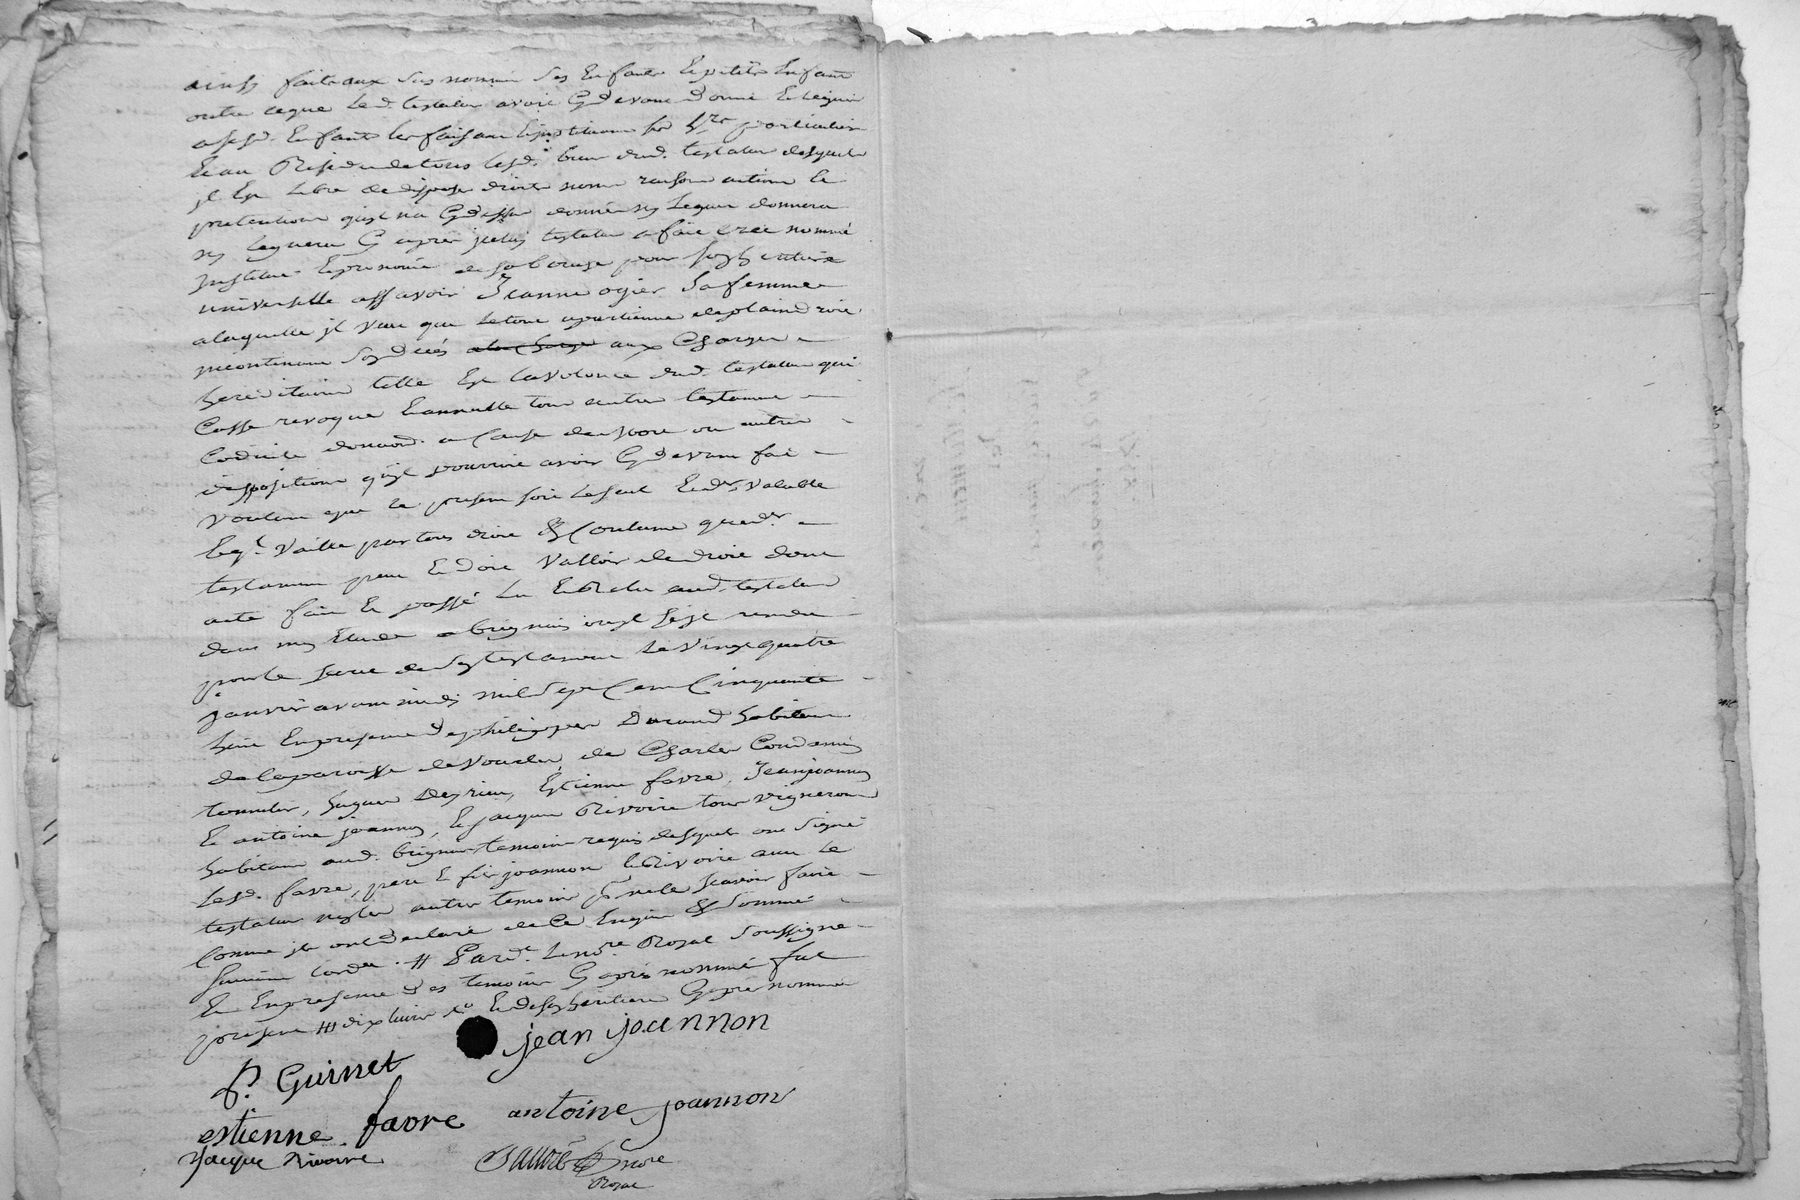 ainsy faite aux sus nommés ses Enfants Et petits Enfants
outre ce que led. testateur avoit Cy devant donné Et légué
a sesd. Enfants les faisant Et instituant ses hrs particuliers
Et au Résidu de tous lesd. biens dud. testateur desquels
il Est Libre de disposer droits noms raisons actions Et
pretentions qu'il n'a Cy dessus donnés ny Legués donnera
ny leguera Cy après jceluy testateur a fait créé nommé
Institué Et prenommé de sa bouche pour son héritière
universelle assavoir Jeanne ogier Sa femme
a laquelle jl veut que le tout apartienne de plain droit
incontinant son décès a la charge aux Charges
hereditaires telle Est la volonté dud. testateur qui
Casse revoque Et annulle tous autres testaments
Codicile donnaon. a Cause de mort ou autres
dispositions qu'il pourroit avoir Cy devant fait
Voulant que le present soit le seul Et der. valable
Et ql. Vaille par tous droit & Coutume que der.
testament peut Et doit Valloir de droit dont
acte fait Et passé Lu Et Relu aud. testateur
dans mon Etude a brignais ou il s'est rendu
pour le fait de son testament le vingt quatre
janvier avant midy mil sept Cent Cinquante
huit En presence de philippe Durand habitant
de la paroisse de Vourles, de Charles Condamin
tonnelier, hugues Deyrieu, Estienne favre, Jean joannon
Et antoine joannon, Et jacques Rivoire tous vignerons
habitans aud. brignais temoins requis desquels ont signé
lesd. favre, pere Et fils joannon Et Rivoire avec le
testateur non les autres temoins pr. ne le scavoir faire
Comme jls ont declaré de Ce Enquis & sommés
suivant lord.ce # Par d.t Le nore. Royal soussigné
Et En presence des temoins Cy après nommés fut
présent ## dix huit Et de son heritiere Cy apres nommée
P. Guinet jean joannon
estienne favre antoine joannon
Jacque Rivoire
nore
Royal